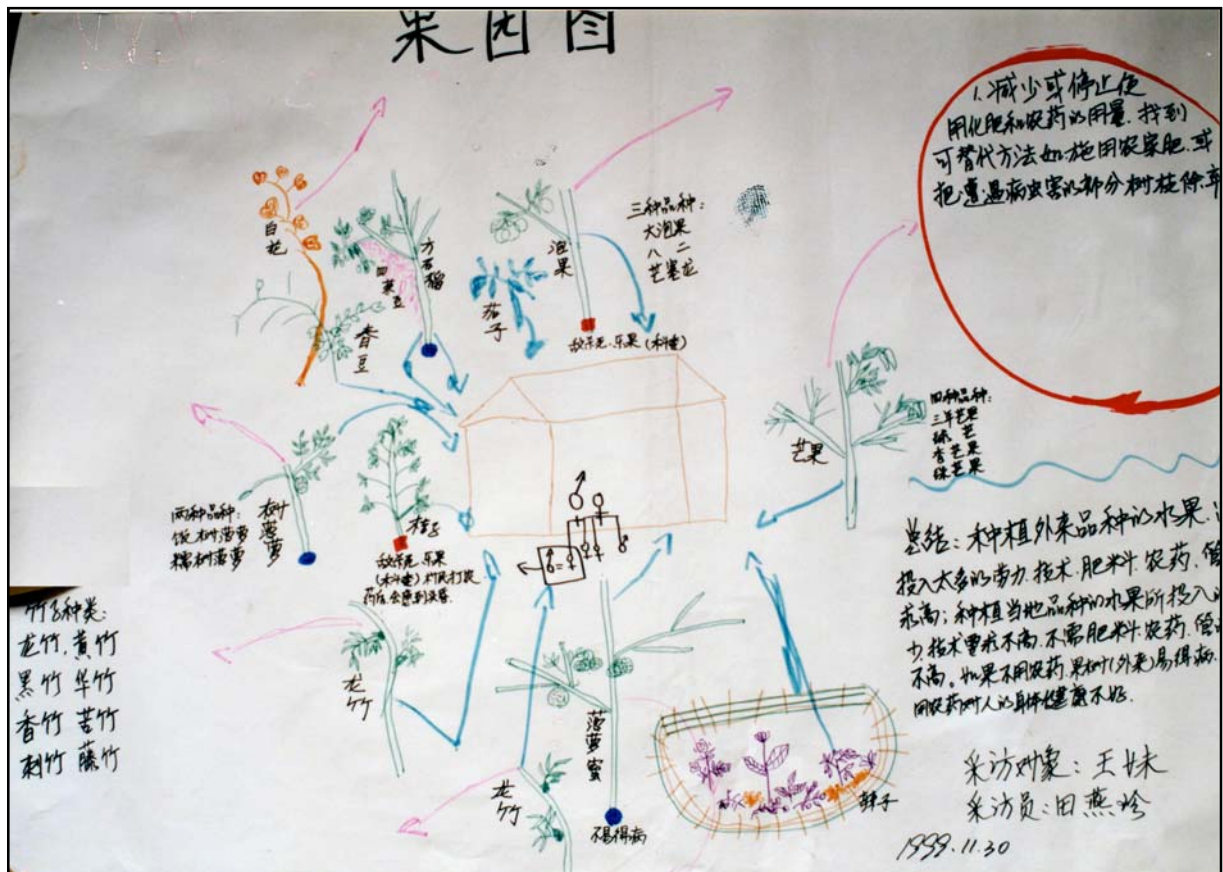 果园图
1.减少或停止使
用化肥和农药的用量.找到
可替代方法如:施用农家肥.或
把遭遇病虫害的部分树枝除
白花
香豆
四菜豆
方石榴
茄子
泡果
三种品种:
大泡果
敌杀死.乐果
芒果
四种品种:
三年芒果
香芒果
绿芒果
两种品种:
饭树菠萝
糯树菠萝
树菠萝
敌杀死.乐果
村民打农
药后会感到头昏.
竹子种类:
龙竹.黄竹
黑竹 华竹
香竹 苦竹
刺竹 藤竹
龙竹
龙竹
菠萝蜜
不易得病
辣子
总结:种植外来品种的水果.
投入太多的劳力.技术.肥料.农药.管
求高;种植当地品种的水果所投入
少.技术要求不高.不需肥料.农药.管
不高。如果不用农药.果树(外来)易得病.
用农药对人的身体健康不好.
采访对象:王妹
采访员:田燕
1999.11.30